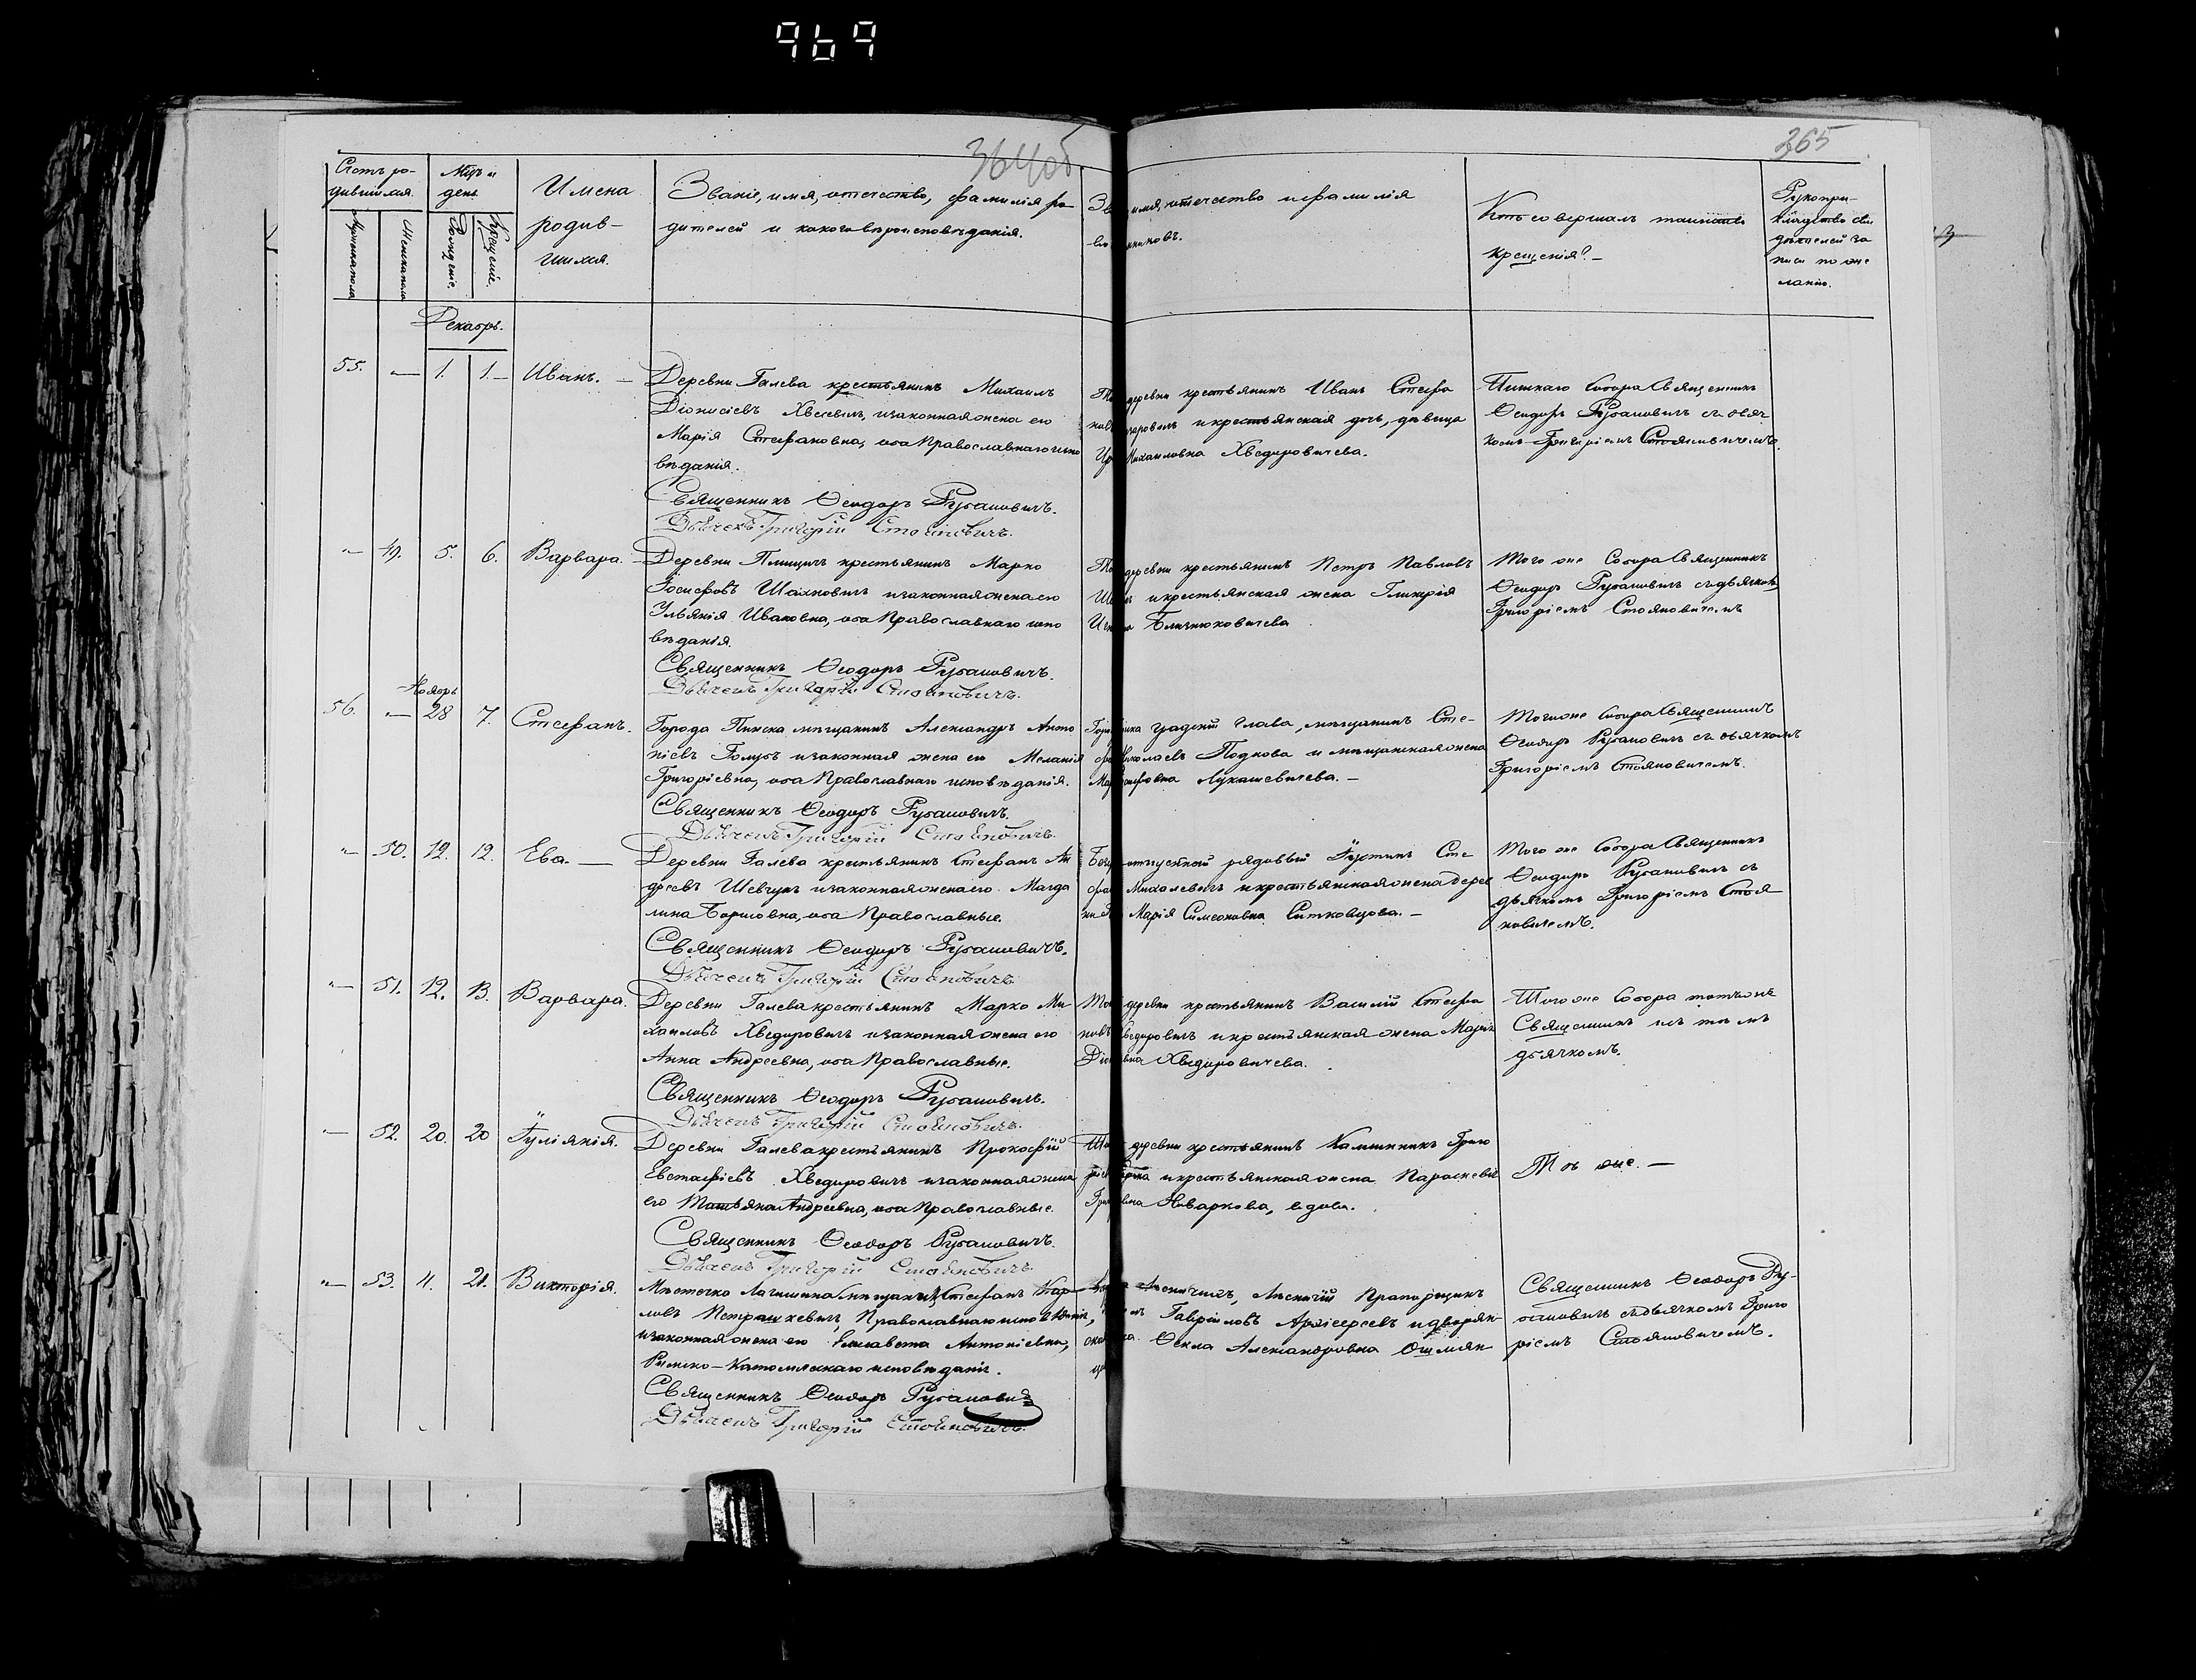 969
364об
365
Счетъ ро-
дившихся.
Мужеска пола
Женска пола
Мѣц. и
день
Рожденіе.
Крещеніе.
Имена
родив-
шихся.
Званіе, имя, отечество, фамилія ро-
дителей и какого вѣроисповѣданія.
имя, отечество и фамилія
Кто совершалъ таинство
крещенія? —
Рукопри-
кладство сви
дѣтелей за
писи по же
ланію.
Декабрь.
55. „— 1. 1. — Иванъ. —
Деревни Галева крестьянинъ Михаилъ
Діонисіевъ и законная жена его
Марія Стефановна, оба Православнаго испо
вѣданія.
Священникъ Ѳеодоръ Русановичъ.
Дьячекъ Григорій Стояновичъ.
деревни крестьянинъ Иванъ Стефа
и крестьянская дочь, дѣвица
Михаиловна Хведоровичева.
Пинскаго Собора Священникъ
Ѳеодоръ Русановичъ съ дьяч
комъ Григоріемъ Стояновичемъ.
„— 49. 5. 6. Варвара. —
Деревни крестьянинъ Марко
Іосифовъ Шахновичъ и законная жена его
Ульянія Ивановна, оба Православнаго испо
вѣданія.
Священникъ Ѳеодоръ Русановичъ.
Дьячекъ Григорій Стояновичъ.
деревни крестьянинъ Петръ Павловъ
и крестьянская жена Гликрія
Близнюковичева
Того же Собора Священникъ
Ѳеодоръ Русановичъ съ дьячкомъ
Григоріемъ Стояновичемъ
Ноябрь
56. „— 28 7. Стефанъ.
Города Пинска мѣщанинъ Александръ Анто
ніевъ Голубъ и законная жена его Меланія
Григоріевна, оба Православнаго исповѣданія.
Священникъ Ѳеодоръ Русановичъ.
Дьячекъ Григорій Стояновичъ.
градскій глава, мѣщанинъ Сте-
Николаевъ Подкова и мѣщанская жена
Лукашевичева. —
Того же Собора Священникъ
Ѳеодоръ Русановичъ съ дьячкомъ
Григоріемъ Стояновичемъ.
„— 50. 12. 12. Ева. —
Деревни Галева крестьянинъ Стефанъ Ан
дреевъ Шевчукъ и законная жена его Магда
лина Борисовна, оба Православные.
Священникъ Ѳеодоръ Русановичъ.
Дьячекъ Григорій Стояновичъ.
отпускной рядовый Іустинъ Сте
Михалевичъ и крестьянская жена дерев
Марія Симеоновна Ситковцова. —
Того же Собора Священникъ
Ѳеодоръ Русановичъ съ
дьячкомъ Григоріемъ Стоя
новичемъ.
„— 51. 12. 13. Варвара.
Деревни Галева крестьянинъ Марко Ми
хаиловъ Хведоровичъ и законная жена его
Анна Андреевна, оба Православные.
Священникъ Ѳеодоръ Русановичъ.
Дьячекъ Григорій Стояновичъ.
деревни крестьянинъ Василій Стефа
и крестьянская жена Марія
Хведоровичева.
Того же Собора тотъ же
Священникъ съ тѣмъ
дьячкомъ.
„— 52. 20. 20 Іуліянія.
Деревни Галева крестьянинъ Прокофій
Евстафіевъ Хведоровичъ и законная жена
его Татьяна Андреевна, оба Православные.
Священникъ Ѳеодоръ Русановичъ.
Дьячекъ Григорій Стояновичъ.
деревни крестьянинъ Калинникъ Григо
и крестьянская жена Параскевія
вдова.
Тѣ же. —
„— 53. 11. 21. Викторія.
Мѣстечка Логишина мѣщанинъ Стефанъ Кар-
ловъ Петрашкевичъ, Православнаго исповѣданія,
и законная жена его Елисавета Антоніевна,
Римско-Католическаго исповѣданія.
Священникъ Ѳеодоръ Русановичъ
Дьячекъ Григорій Стояновичъ.
Лѣсничій Прапорщикъ
Гавріиловъ Архіереевъ и дворян-
Ѳекла Александровна Ошмян-
Священникъ Ѳеодоръ Ру-
сановичъ съ дьячкомъ Григо
ріемъ Стояновичемъ.